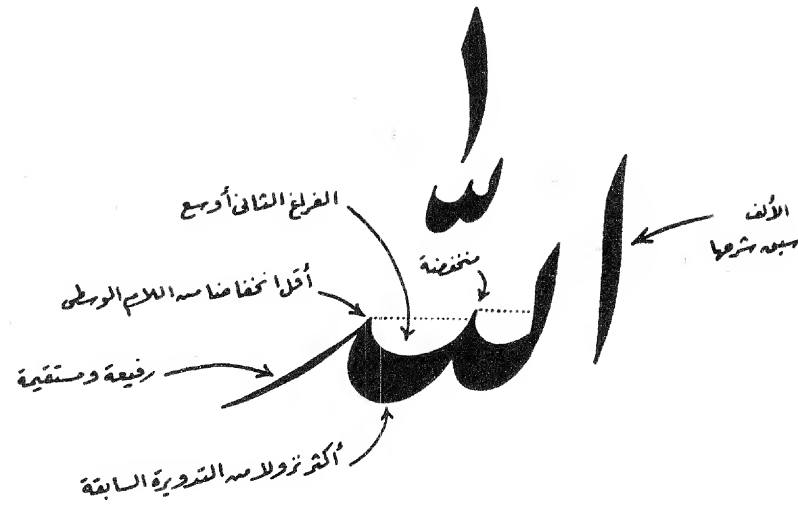 الله
الألف
سبق شرحها
الفراغ الثانى أوسع
منخفضة
أقل انخفاضا من اللام الوسطى
رفيعة ومستقيمة
أكثر نزولا من التدويرة السابقة